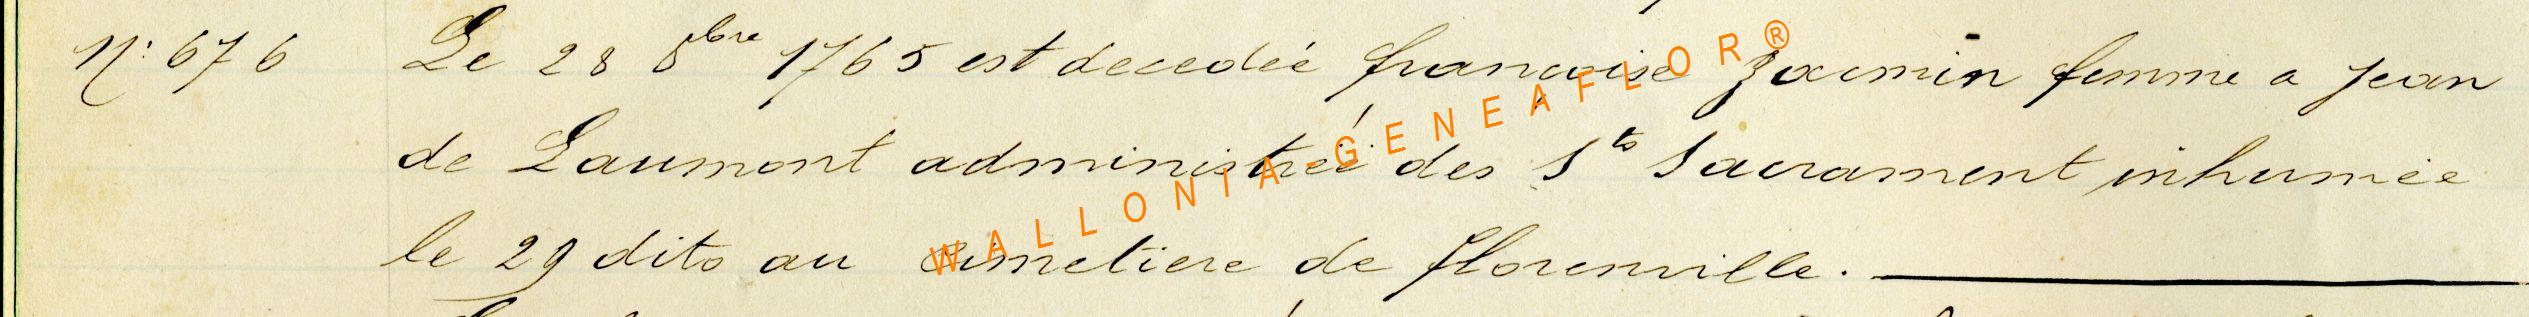 N: 676 Le 28 8bre 1765 est decedée françoise Jacmin femme a jean
de Laumont administreé des Sts Sacrament inhumée
le 29 dito au cimetiere de florenville.
WALLONIA - GENEAFLOR®